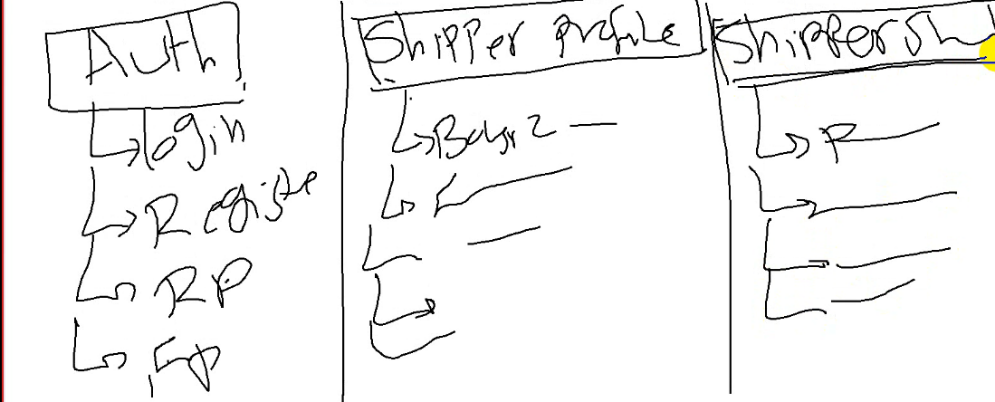 Auth
Login
Registe
RP
Fp
Shipper Profile
Shipper
R